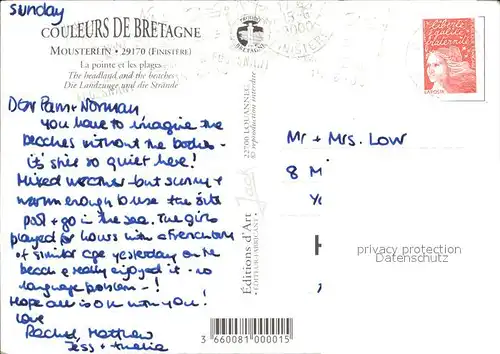 Sunday
COULEURS DE BRETAGNE
MOUSTERLIN • 29170 (FINISTÈRE)
La pointe et les plages
The headland and the beaches
Die Landzunge und die Strände
Dear Pam + Norman
you have to imagine the
beaches without the bodies -
it's still so quiet here!
Mixed weather - but sunny +
warm enough to use the
pool + go in the sea. The girls
played for hours with a French
of similar age yesterday on the
beach & really enjoyed it - no
language problem - !
Hope all is OK with you!
love
Rachel, Matthew
Jess + Amelia
Éditions d'Art
• ÉDITEUR-FABRICANT •
Jack
22700 LOUANNEC
© reproduction interdite
3 660081 000015
BRETAGNE
FINISTERE
liberté
égalité
fraternité
LA POSTE
Mr + Mrs. Low
8 M
Yo
privacy protection
Datenschutz